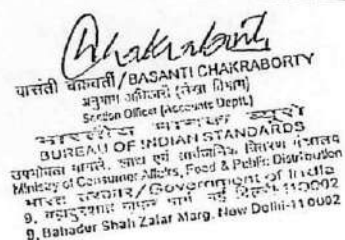 Chakraborty
बासंती चक्रवर्ती / BASANTI CHAKRABORTY
अनुभाग अधिकारी (लेखा विभाग)
Section Officer (Accounts Deptt.)
भारतीय मानक ब्यूरो
BUREAU OF INDIAN STANDARDS
उपभोक्ता मामले, खाद्य एवं सार्वजनिक वितरण मंत्रालय
Ministry of Consumer Affairs, Food & Public Distribution
भारत सरकार / Government of India
9, बहादुरशाह ज़फर मार्ग, नई दिल्ली-110002
9, Bahadur Shah Zafar Marg, New Delhi-110002